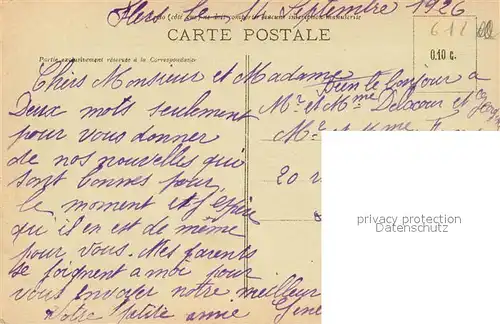 Flers le 4 Septembre 1926
CARTE POSTALE
612
0.10 c.
Partie exclusivement réservée à la Correspondance
Chers Monsieur et Madame
Bien le bonjour a
Mr et Mme Delacour et
Deux mots seulement
pour vous donner
Mr et Mme
de nos nouvelles qui
sont bonnes pour
20
le moment et j'espère
qu il en est de même
pour vous. Mes parents
se joignent a moi pour
vous envoyer notre meilleur
Votre petite amie
privacy protection
Datenschutz